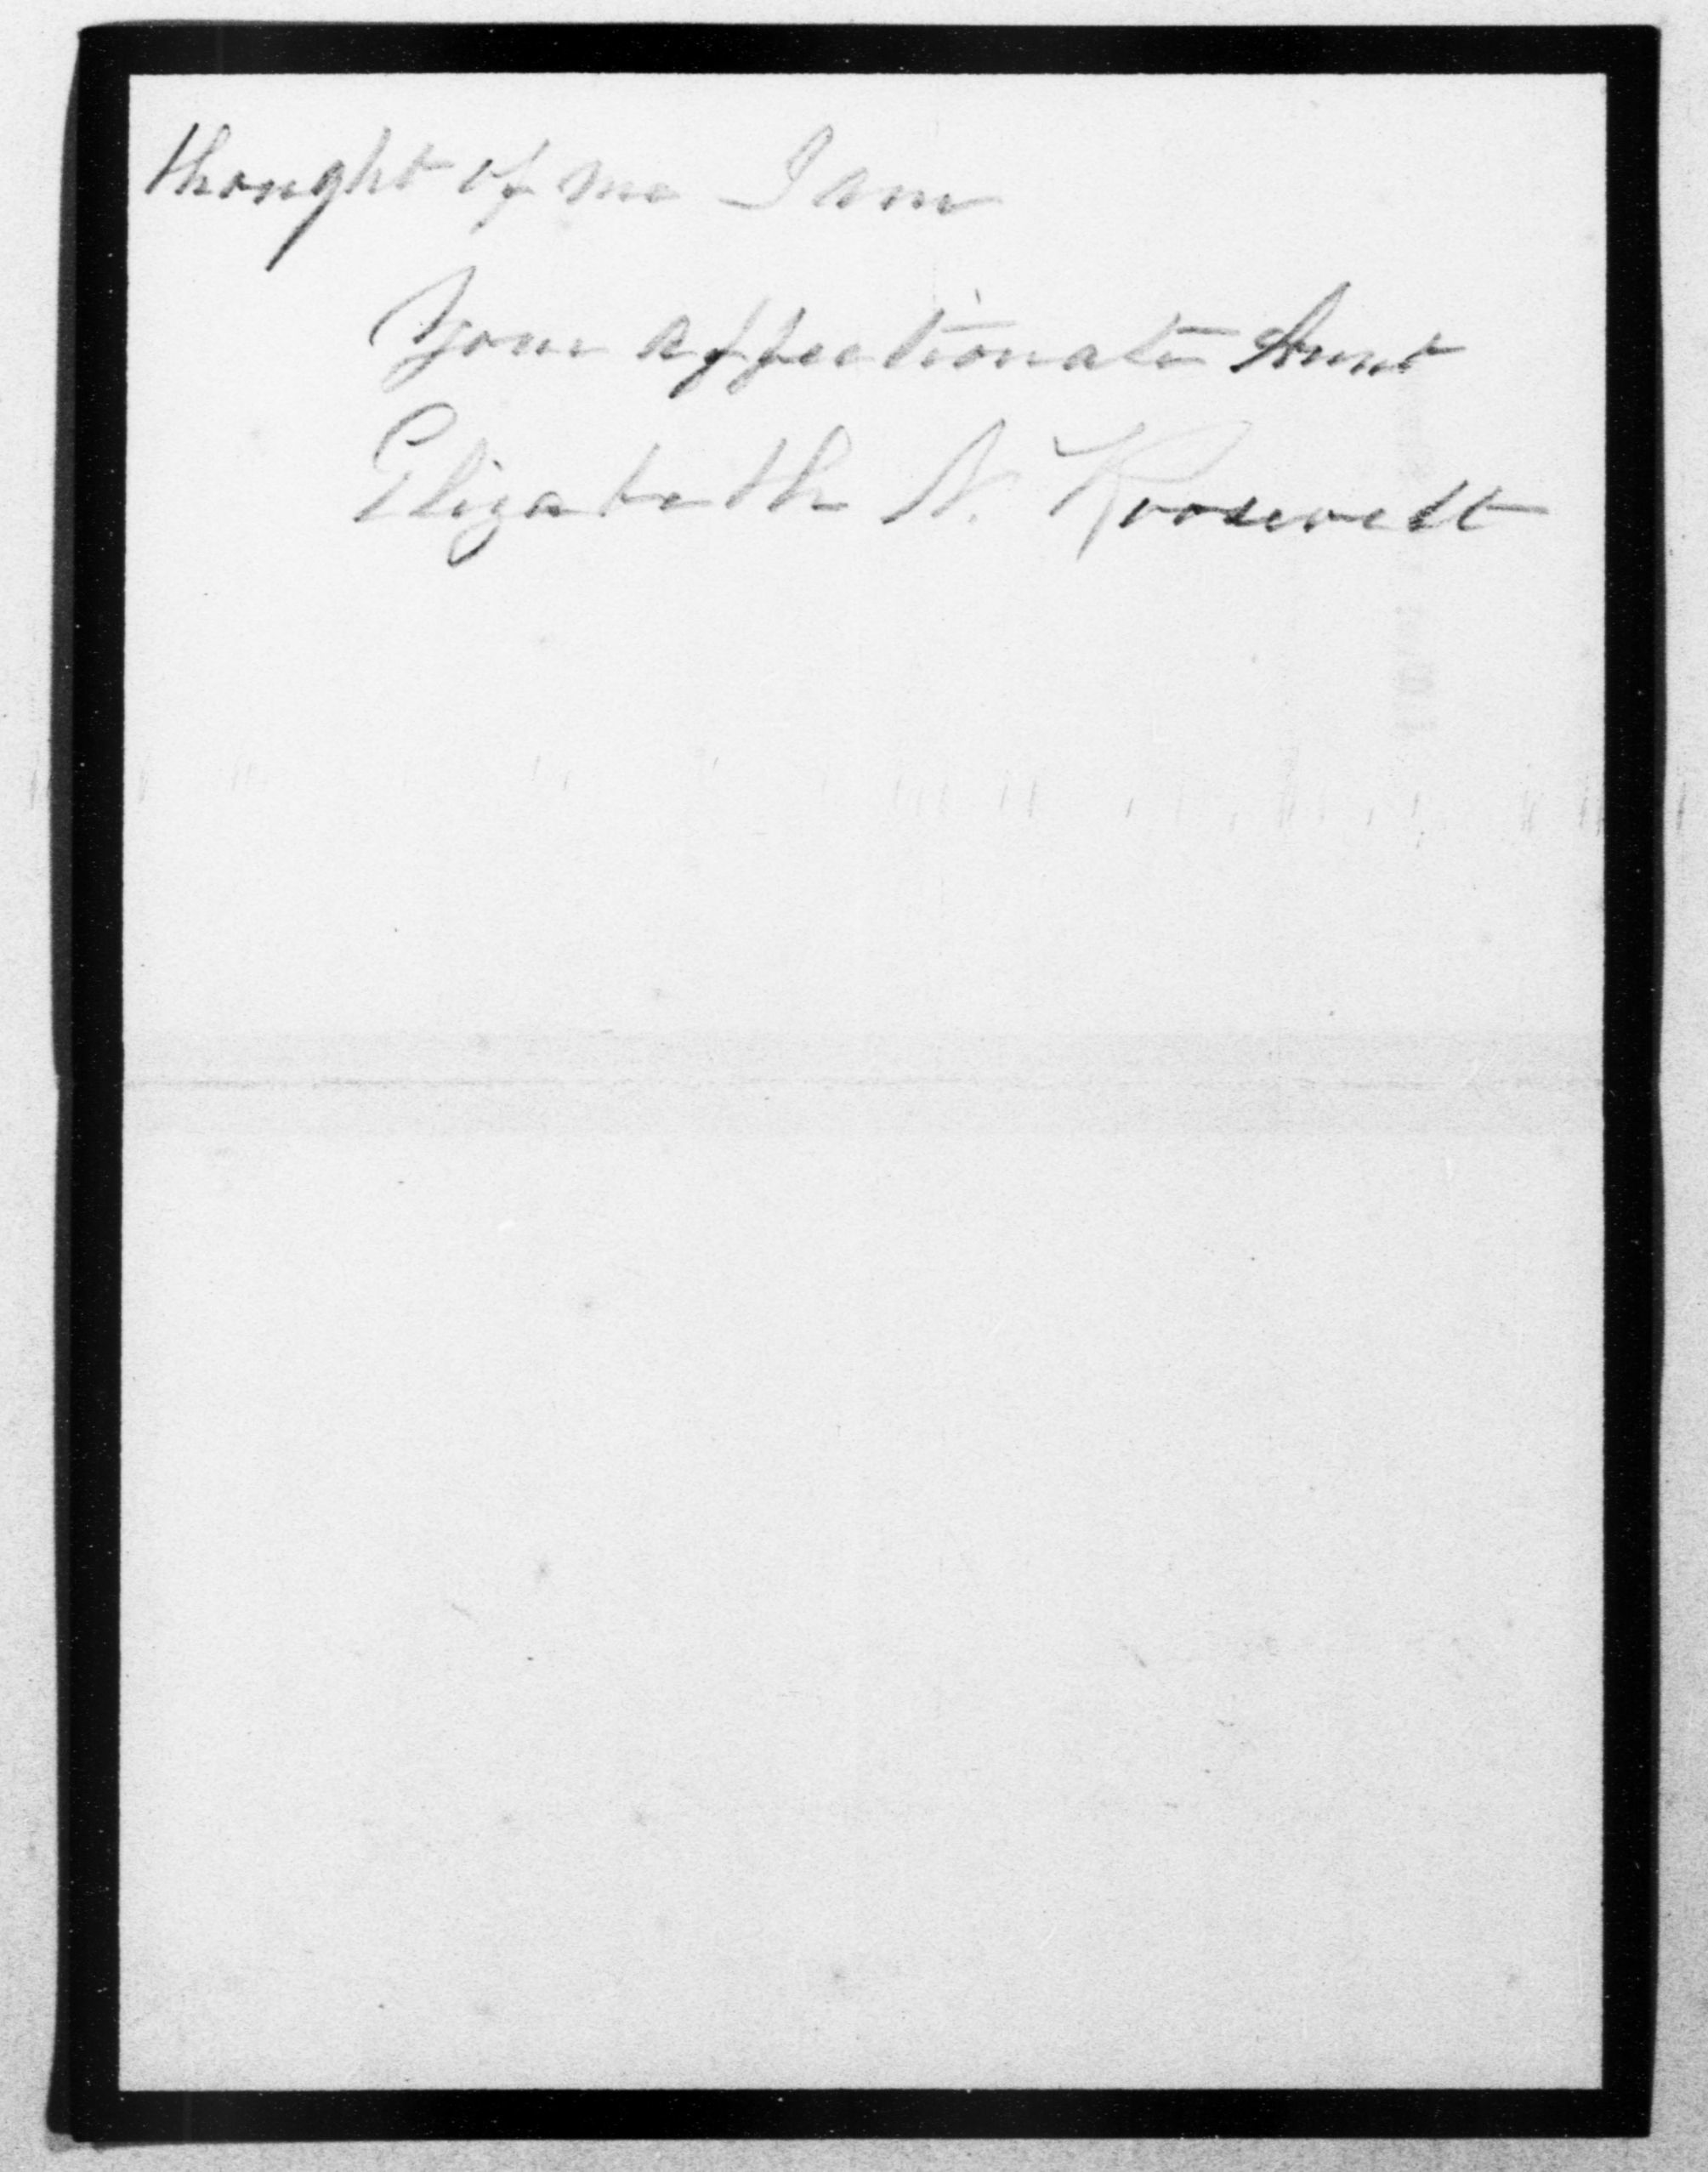 thought of me I am
Your affectionate Aunt
Elizabeth N. Roosevelt